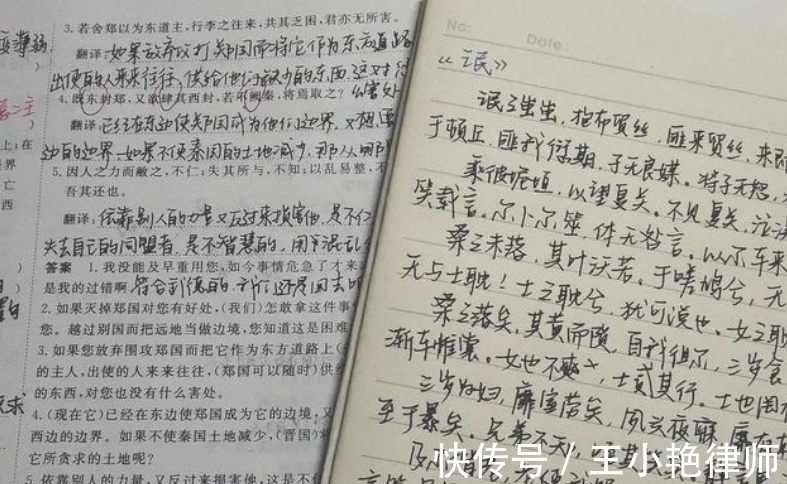 3. 若舍郑以为东道主,行李之往来,共其乏困,君亦无所害。
翻译:如果放弃攻打郑国而将它作为东方道路
出使的人来来往往,供给他们缺少的东西,这对
4. 既东封郑,又欲肆其西封,若不阙秦,将焉取之?
翻译:已经在东边使郑国成为他们边界,又想
边的边界,如果不使秦国的土地减少,那从哪
5. 因人之力而敝之,不仁;失其所与,不知;以乱易整,不
吾其还也。
翻译:依靠别人的力量又反过来损害他,是不仁
失去自己的同盟者,是不智慧的,用
答案 1. 我没能及早重用您,如今事情危急了才来
是我的过错啊
2. 如果灭掉郑国对您有好处,(我们)怎敢拿这件事
您。越过别国而把远地当做边境,您知道这是困难
3. 如果您放弃围攻郑国而把它作为东方道路上(
的主人,出使的人来来往往,(郑国可以随时)供
的东西,对您也没有什么害处。
4. (现在它)已经在东边使郑国成为它的边境,又
西边的边界。如果不使秦国土地减少,(晋国)
它所贪求的土地呢?
5. 依靠别人的力量,又反过来损害他,这是不
No:
Date:
《氓》
氓之蚩蚩,抱布贸丝,匪来贸丝,来即
于顿丘,匪我愆期,子无良媒。将子无怒,
乘彼垝垣,以望复关。不见复关,泣涕
笑载言。尔卜尔筮,体无咎言。以尔车来
桑之未落,其叶沃若。于嗟鸠兮,无
无与士耽!士之耽兮,犹可说也。女之耽
桑之落矣,其黄而陨,自我徂尔,三岁食
渐车帷裳。女也不爽,士贰其行。士也罔
三岁为妇,靡室劳矣,夙兴夜寐,靡有
至于暴矣。兄弟不知,
快传号 / 王小艳律师